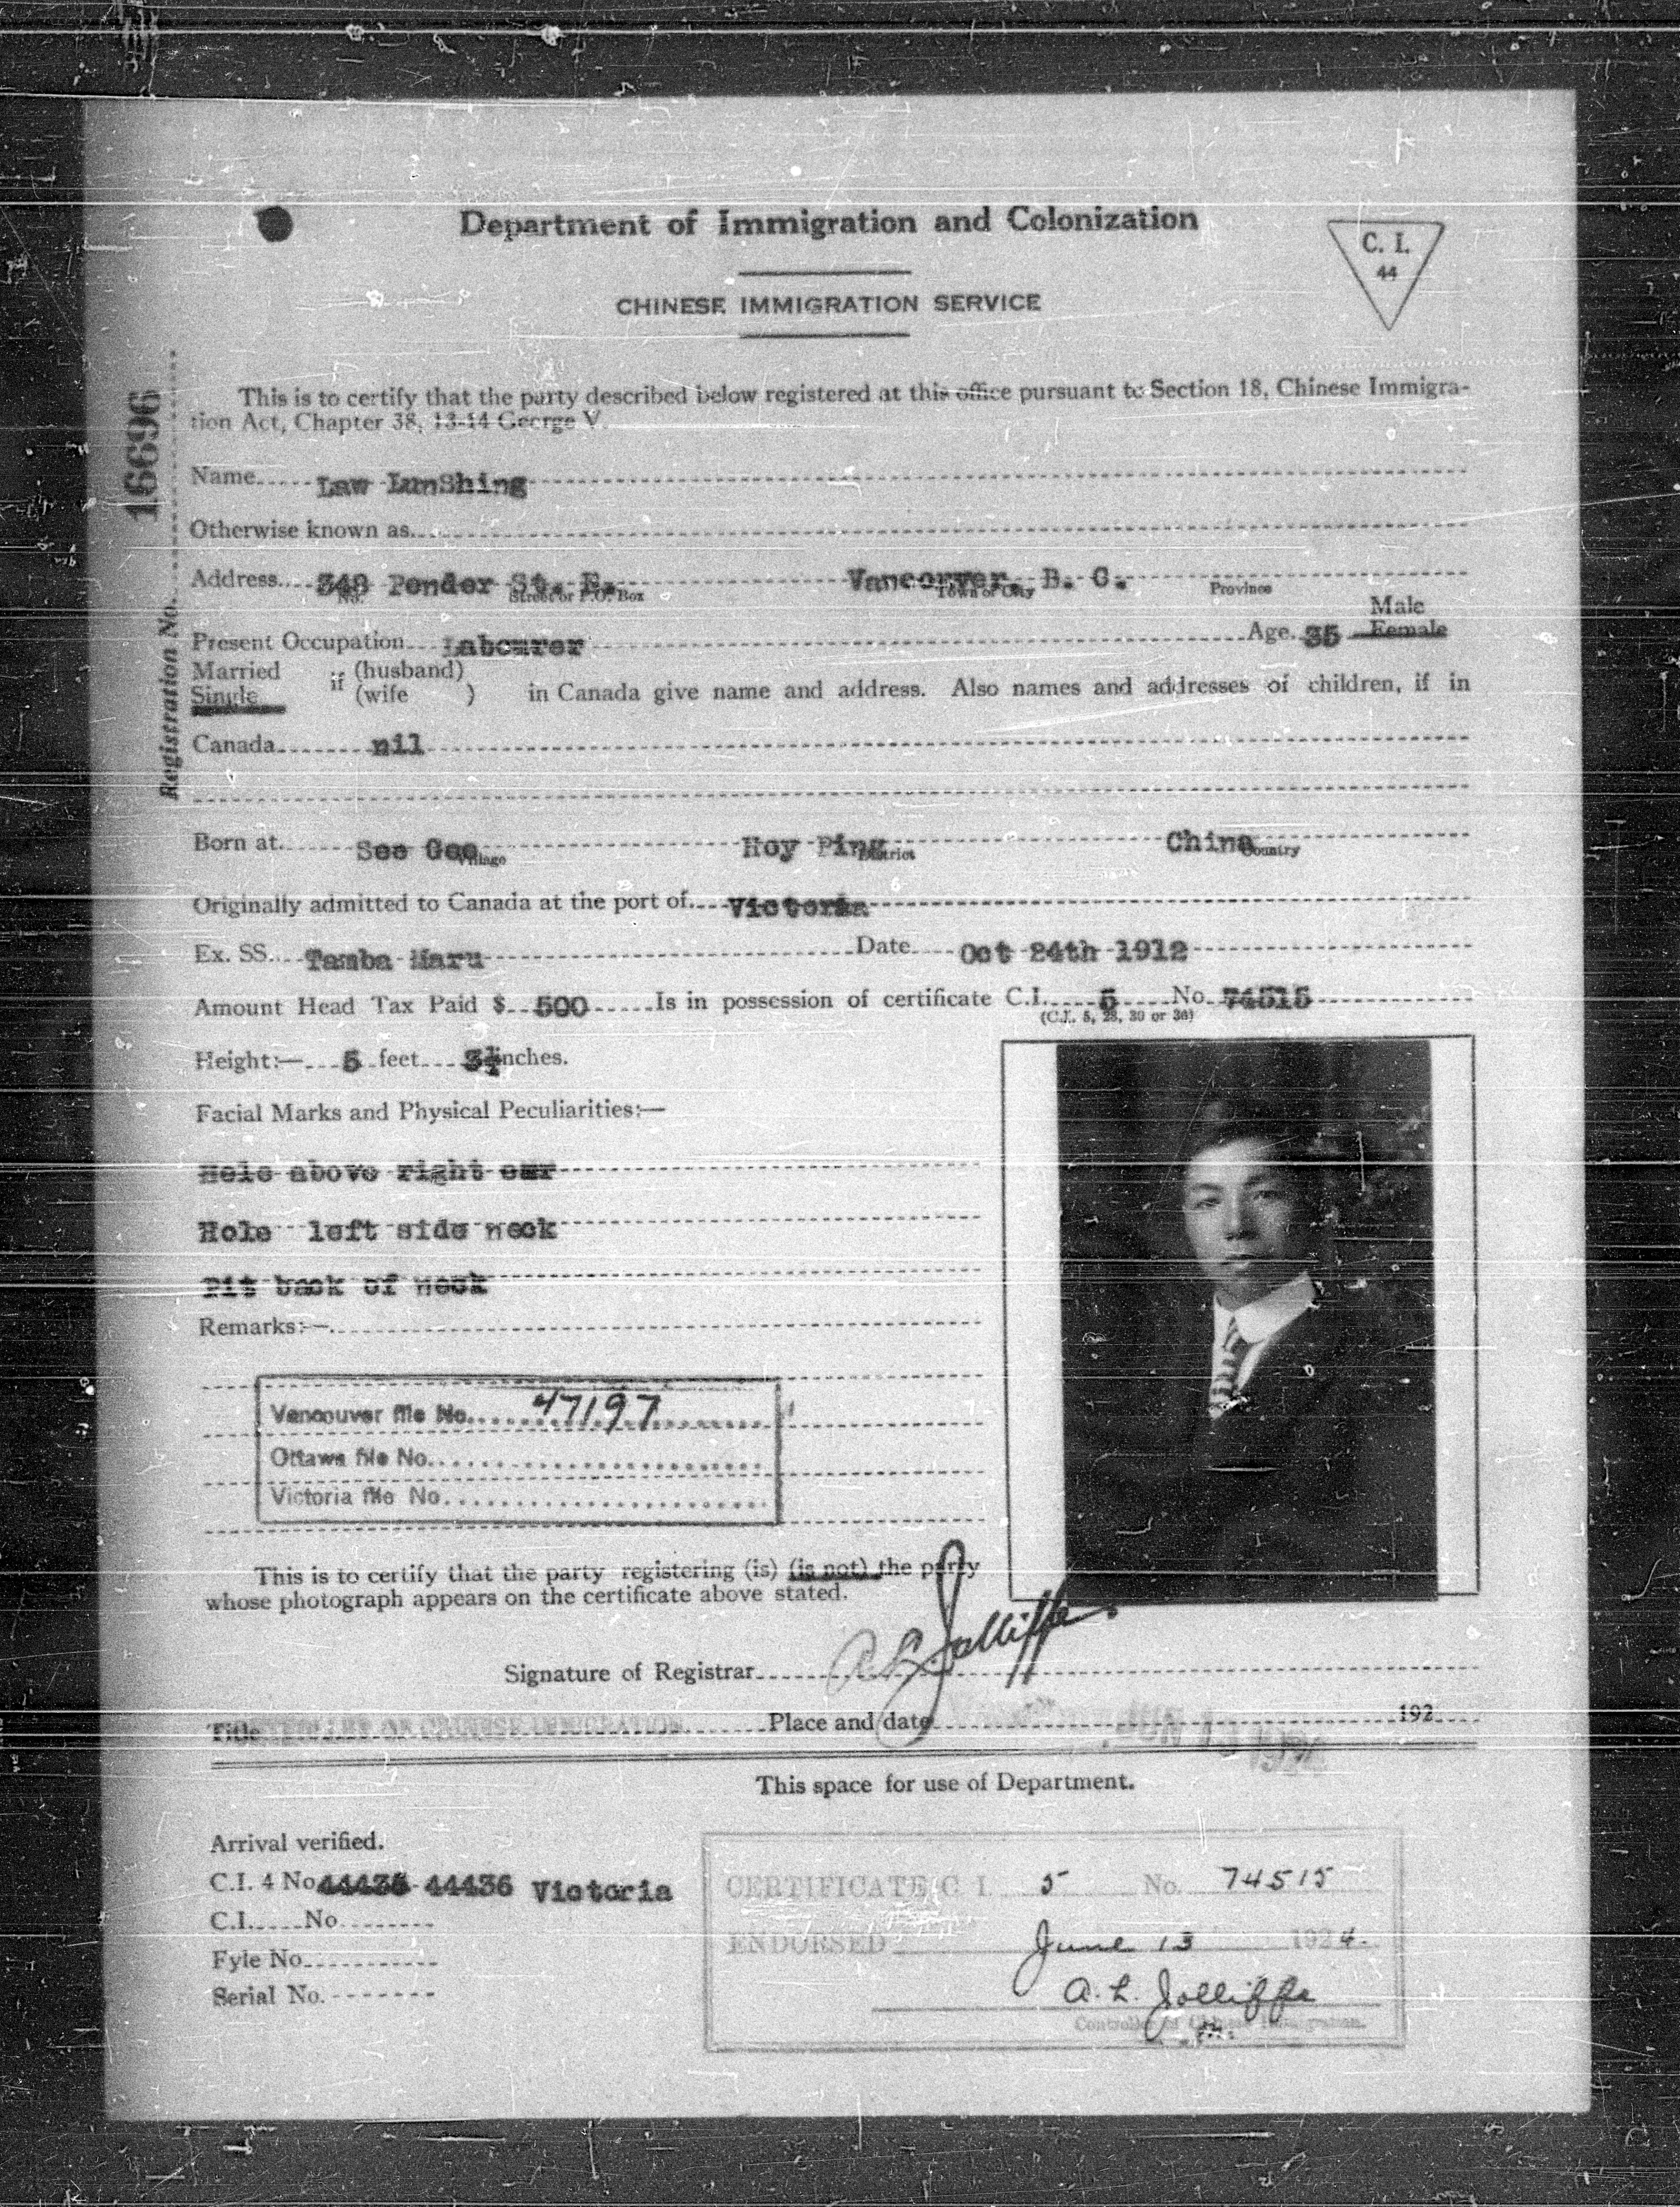 Department of Immigration and Colonization
C. I.
44
CHINESE IMMIGRATION SERVICE
This is to certify that the party described below registered at this office pursuant to Section 18, Chinese Immigra-
tion Act, Chapter 38, 13-14 George V.
Registration No. 16696
Name Law LunShing
Otherwise known as
Address 348 Pender St. E. Vancorver, B. C.
No. Street or P.O. Box Town or City Province
Present Occupation Labourer Age 35 Male
Female
Married if (husband)
Single (wife ) in Canada give name and address. Also names and addresses of children, if in
Canada nil
Born at See Gee Hoy Ping China
Village District Country
Originally admitted to Canada at the port of Victoria
Ex. SS. Tamba Maru Date Oct 24th 1912
Amount Head Tax Paid $ 500 Is in possession of certificate C.I. 5 No. 74515
(C.I. 5, 28, 30 or 36)
Height:— 5 feet 3½ inches.
Facial Marks and Physical Peculiarities:—
Hole above right ear
Hole left side neck
Pit back of neck
Remarks:—
Vancouver file No. 47197
Ottawa file No.
Victoria file No.
This is to certify that the party registering (is) (is not) the party
whose photograph appears on the certificate above stated.
Signature of Registrar A. L. Jolliffe
Title CONTROLLER OF CHINESE IMMIGRATION Place and date JUN 13 1924 192
This space for use of Department.
Arrival verified.
C.I. 4 No 44435 44436 Victoria
C.I. No
Fyle No.
Serial No.
CERTIFICATE C I. 5 No. 74515
ENDORSED June 13 1924.
A. L. Jolliffe
Controller of Chinese Immigration.